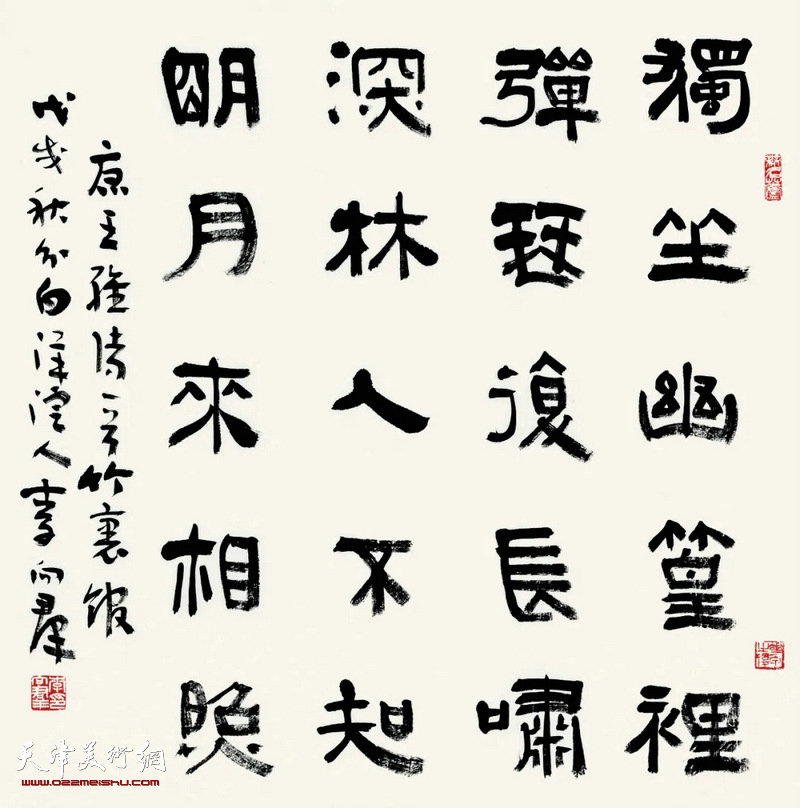 獨坐幽篁裡
彈琴復長嘯
深林人不知
明月來相照
唐王維詩一首竹裏館
戊戌秋分白洋淀人李向群
天津美術網
www.022meishu.com